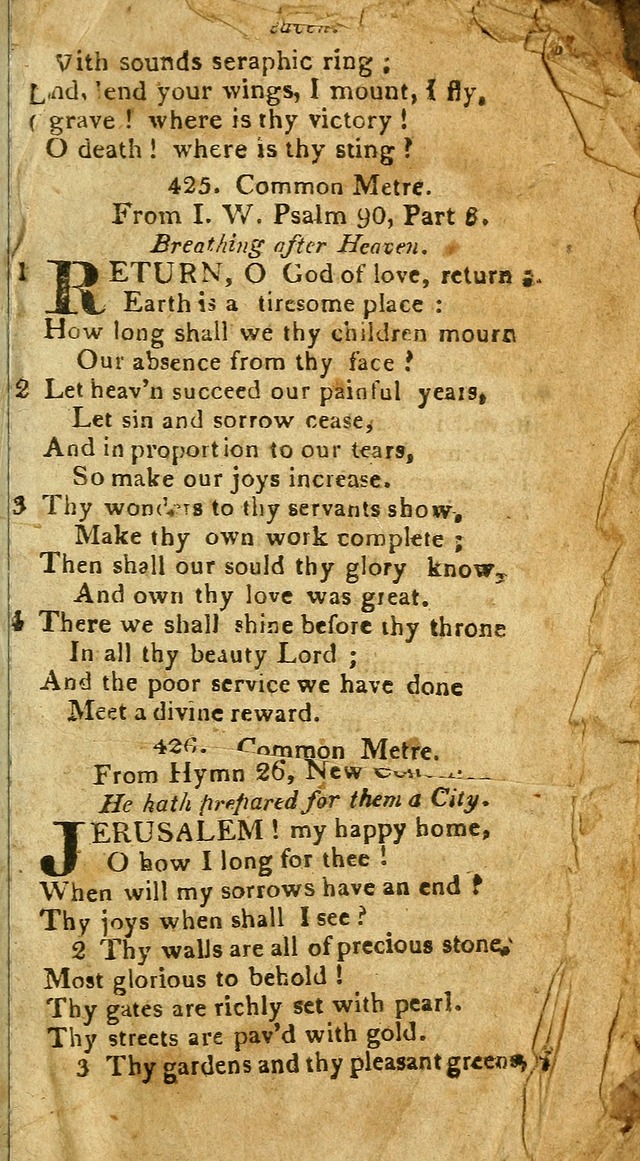 With sounds seraphic ring ;
Lend, lend your wings, I mount, I fly,
grave ! where is thy victory !
O death ! where is thy sting ?
425. Common Metre.
From I. W. Psalm 90, Part 6.
Breathing after Heaven.
1 RETURN, O God of love, return ;
Earth is a tiresome place :
How long shall we thy children mourn
Our absence from thy face ?
2 Let heav'n succeed our painful years,
Let sin and sorrow cease,
And in proportion to our tears,
So make our joys increase.
3 Thy wonders to thy servants show,
Make thy own work complete ;
Then shall our sould thy glory know,
And own thy love was great.
4 There we shall shine before thy throne
In all thy beauty Lord ;
And the poor service we have done
Meet a divine reward.
426. Common Metre.
From Hymn 26, New
He hath prepared for them a City.
JERUSALEM ! my happy home,
O how I long for thee !
When will my sorrows have an end ?
Thy joys when shall I see ?
2 Thy walls are all of precious stone,
Most glorious to behold !
Thy gates are richly set with pearl.
Thy streets are pav'd with gold.
3 Thy gardens and thy pleasant greens,